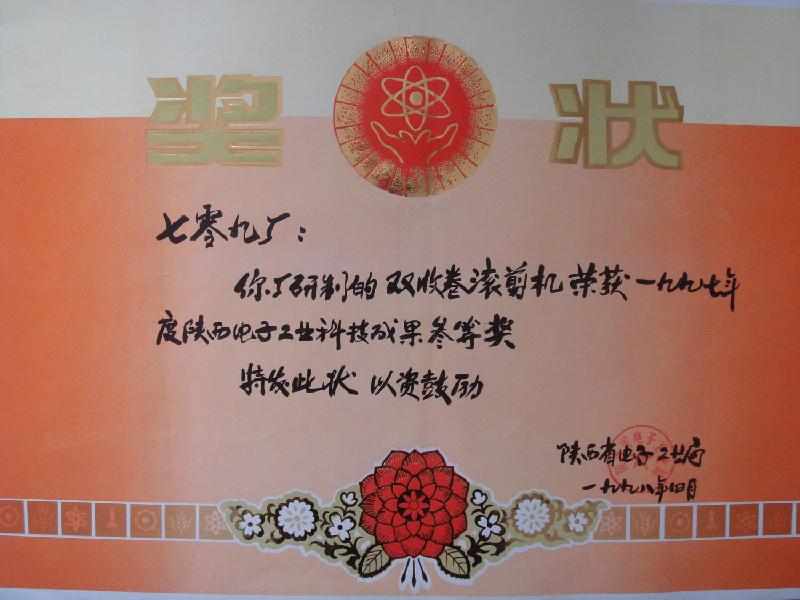 奖状
七零九厂：
你厂研制的双收卷滚剪机荣获一九九七年
度陕西电子工业科技成果叁等奖
特发此状 以资鼓励
陕西省电子工业局
一九九八年四月